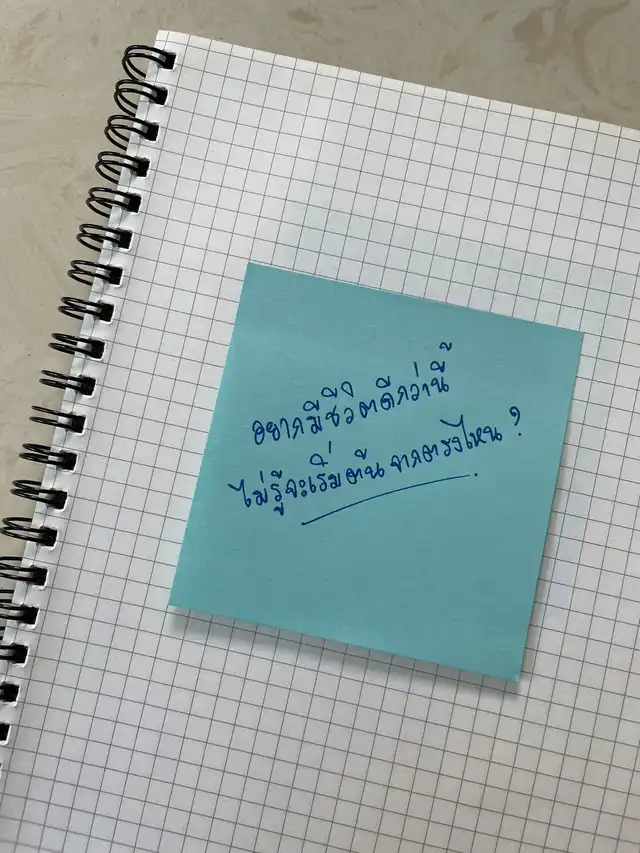 อยากมีชีวิตดีกว่านี้
ไม่รู้จะเริ่มต้นจากตรงไหน ?